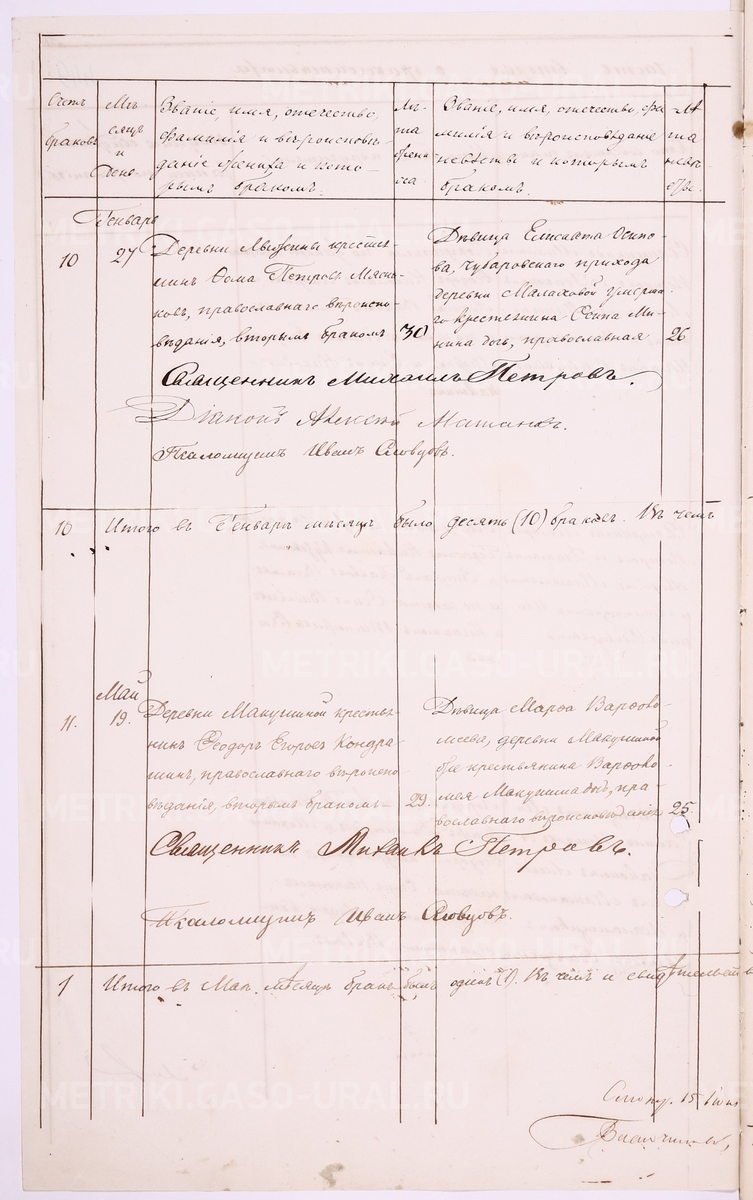 Счетъ браковъ
Мѣсяцъ и день
Званіе, имя, отчество,
фамилія и вѣроисповѣ-
даніе жениха и кото-
рымъ бракомъ.
Лѣта жениха
Званіе, имя, отчество, фа
милія и вѣроисповѣданіе
невѣсты и которымъ
бракомъ.
Лѣта невѣсты.
Генварь
10
27
Деревни крестья-
нинъ Ѳома Петровъ Мясни-
ковъ, православнаго вѣроиспо-
вѣданія, вторымъ бракомъ
30
Дѣвица Елисавета Осипо-
ва, Чубаровскаго прихода
деревни Малаховой умерша-
го крестьянина Осипа Ми-
нина дочь, православная
26
Священникъ Михаилъ Петровъ.
Діаконъ Алексѣй
Псаломщикъ Иванъ Словцовъ.
10 Итого въ Генварѣ мѣсяцѣ было десять (10) браковъ. Въ чемъ
Май
11.
19.
Деревни Макушиной крестья-
нинъ Ѳеодоръ Егоровъ Кондра-
шинъ, православнаго вѣроиспо-
вѣданія, вторымъ бракомъ
29.
Дѣвица Марѳа Варѳоло-
меева, деревни Макушиной
крестьянина Варѳоло-
мея Макушина дочь, пра-
вославнаго вѣроисповѣданія
25
Священникъ Михаилъ Петровъ.
Псаломщикъ Иванъ Словцовъ.
1 Итого въ Маѣ мѣсяцѣ бракъ былъ одинъ (1). Въ чемъ и свидѣтельств
15 Іюня
METRIKI.GASO-URAL.RU
METRIKI.GASO-URAL.RU